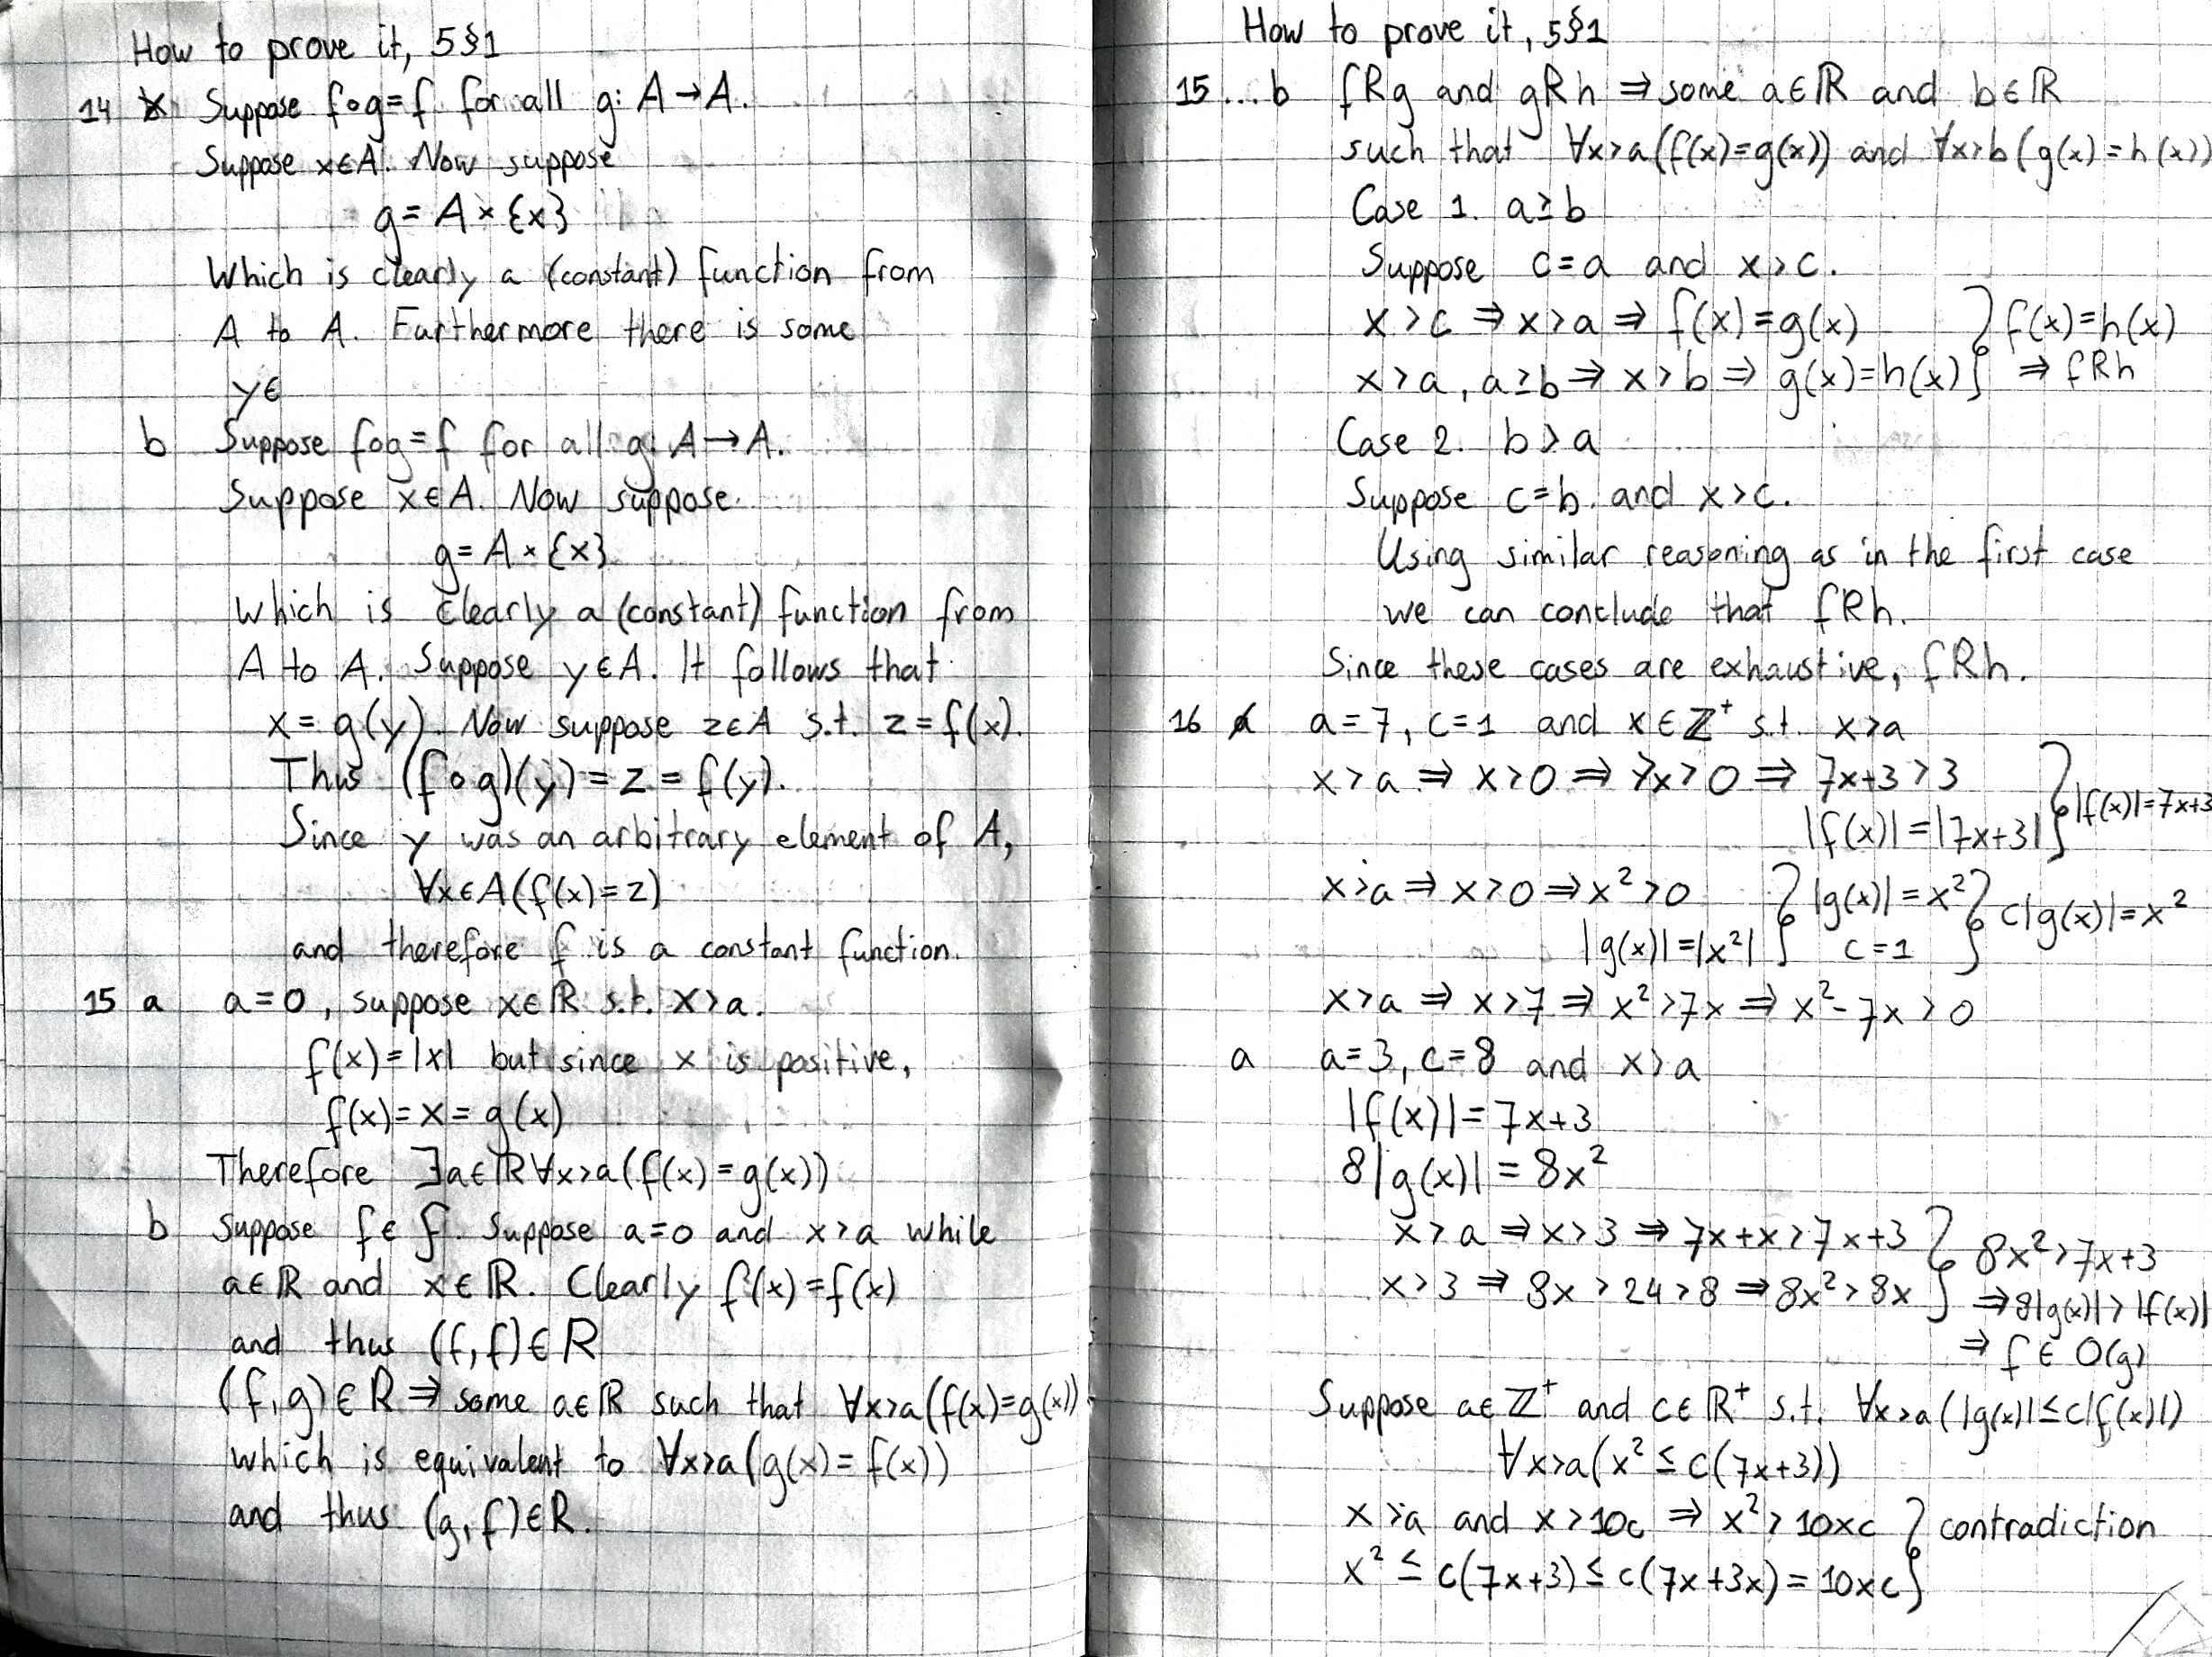 How to prove it, 5§1
14 Suppose f∘g=f for all g: A→A.
Suppose x∈A. Now suppose
g= A×{x}
Which is clearly a (constant) function from
A to A. Furthermore there is some
y∈
b Suppose f∘g=f for all g: A→A.
Suppose x∈A. Now suppose
g= A×{x}
which is clearly a (constant) function from
A to A. Suppose y∈A. It follows that
x=g(y). Now suppose z∈A s.t. z=f(x).
Thus (f∘g)(y)=z=f(y).
Since y was an arbitrary element of A,
∀x∈A(f(x)=z)
and therefore f is a constant function.
15 a a=0, suppose x∈ℝ s.t. x>a.
f(x)=|x| but since x is positive,
f(x)=x=g(x)
Therefore ∃a∈ℝ∀x>a(f(x)=g(x))
b Suppose f∈ℱ. Suppose a=0 and x>a while
a∈ℝ and x∈ℝ. Clearly f(x)=f(x)
and thus (f,f)∈R
(f,g)∈R ⇒ some a∈ℝ such that ∀x>a(f(x)=g(x))
which is equivalent to ∀x>a(g(x)=f(x))
and thus (g,f)∈R.
How to prove it, 5§1
15...b fRg and gRh ⇒ some a∈ℝ and b∈ℝ
such that ∀x>a(f(x)=g(x)) and ∀x>b(g(x)=h(x))
Case 1. a≥b
Suppose c=a and x>c.
x>c ⇒ x>a ⇒ f(x)=g(x) } f(x)=h(x)
x>a, a≥b ⇒ x>b ⇒ g(x)=h(x) } ⇒ fRh
Case 2. b>a
Suppose c=b and x>c.
Using similar reasoning as in the first case
we can conclude that fRh.
Since these cases are exhaustive, fRh.
16 a=7, c=1 and x∈ℤ⁺ s.t. x>a
x>a ⇒ x>0 ⇒ 7x>0 ⇒ 7x+3>3
|f(x)|=|7x+3| } |f(x)|=7x+3
x>a ⇒ x>0 ⇒ x²>0 } |g(x)|=x² } c|g(x)|=x²
|g(x)|=|x²| } c=1
x>a ⇒ x>7 ⇒ x²>7x ⇒ x²-7x>0
a a=3, c=8 and x>a
|f(x)|=7x+3
8|g(x)|=8x²
x>a ⇒ x>3 ⇒ 7x+x>7x+3 } 8x²>7x+3
x>3 ⇒ 8x>24>8 ⇒ 8x²>8x } ⇒ 8|g(x)|>|f(x)|
⇒ f∈O(g)
Suppose a∈ℤ⁺ and c∈ℝ⁺ s.t. ∀x>a(|g(x)|≤c|f(x)|)
∀x>a(x²≤c(7x+3))
x>a and x>10c ⇒ x²>10xc } contradiction
x²≤c(7x+3)≤c(7x+3x)=10xc }